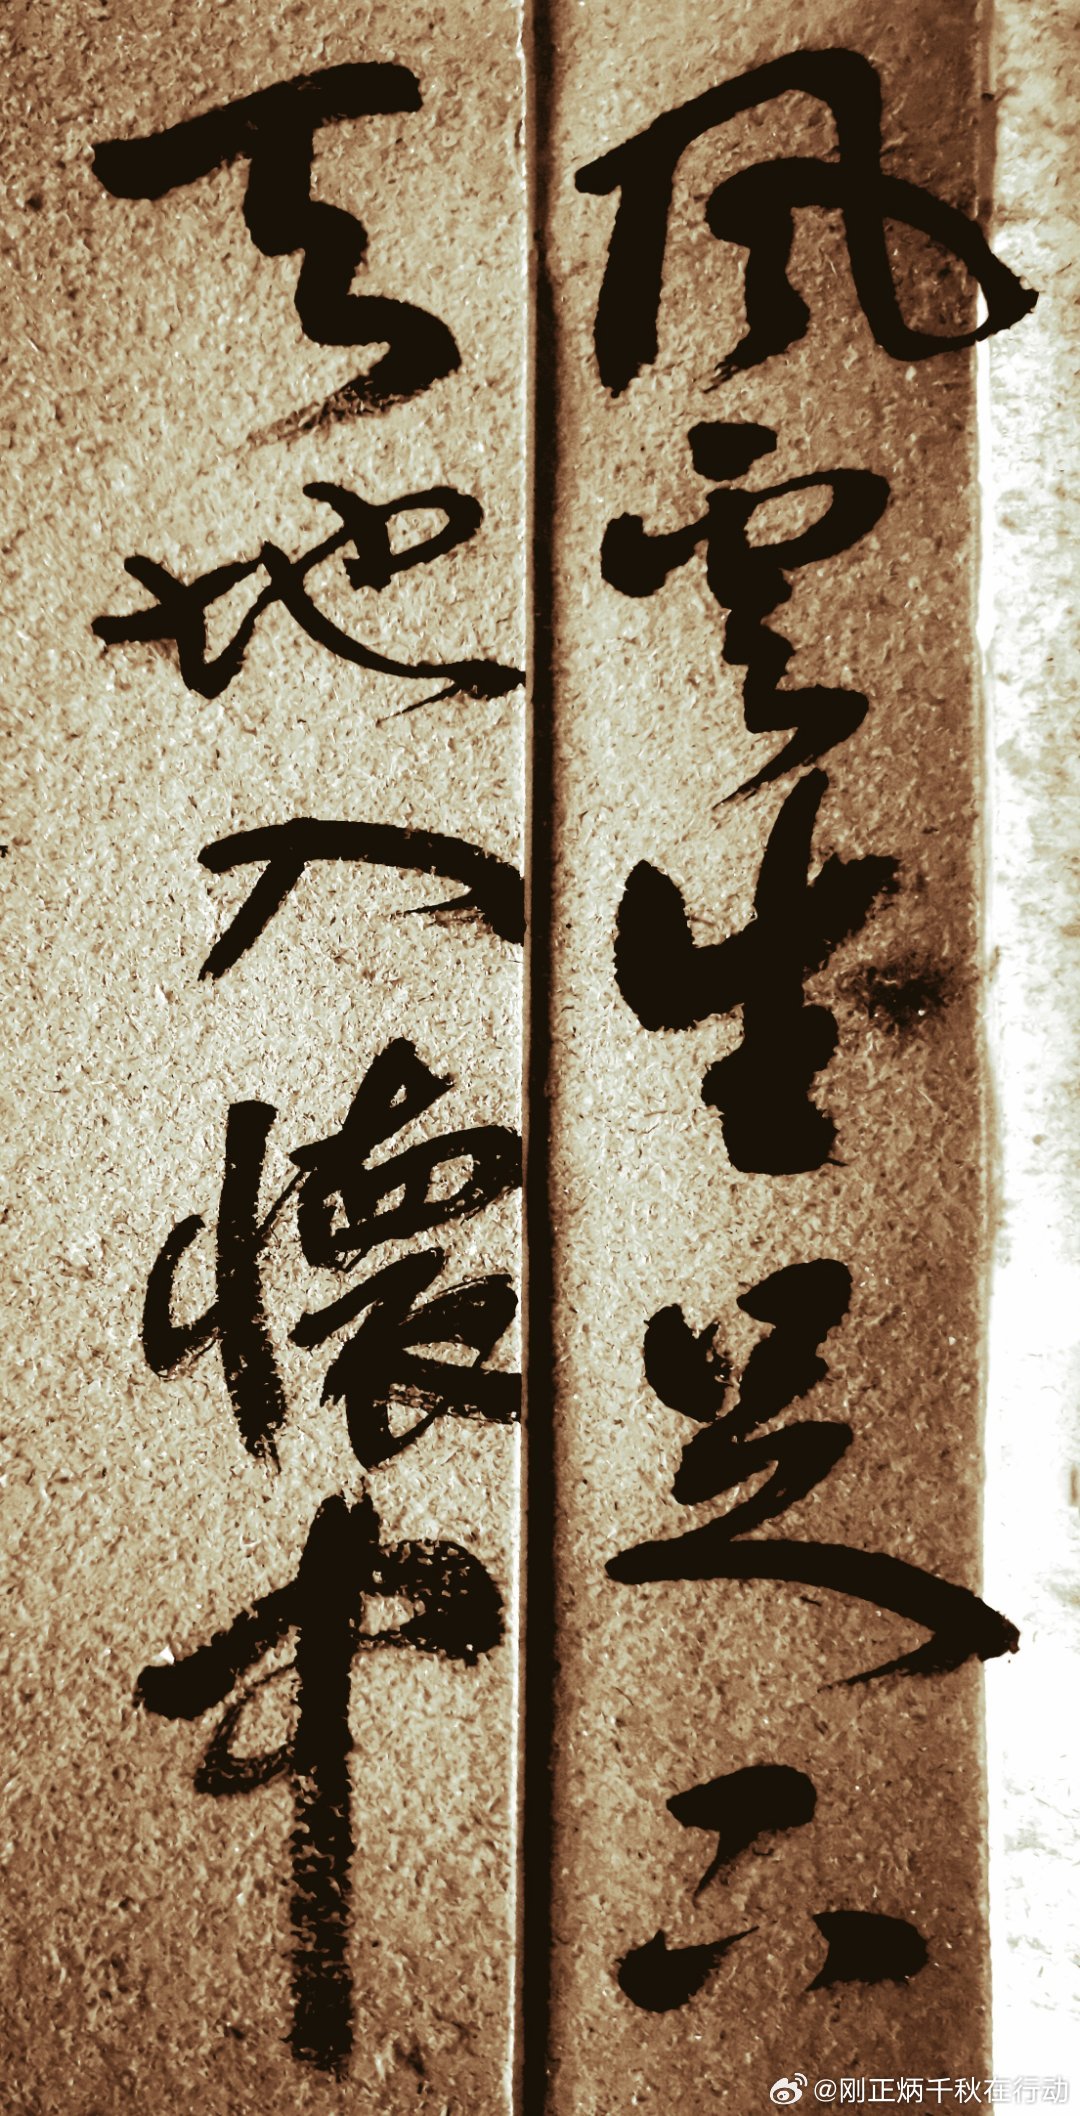 風雲生足下
天地入懷中
@刚正炳千秋在行动